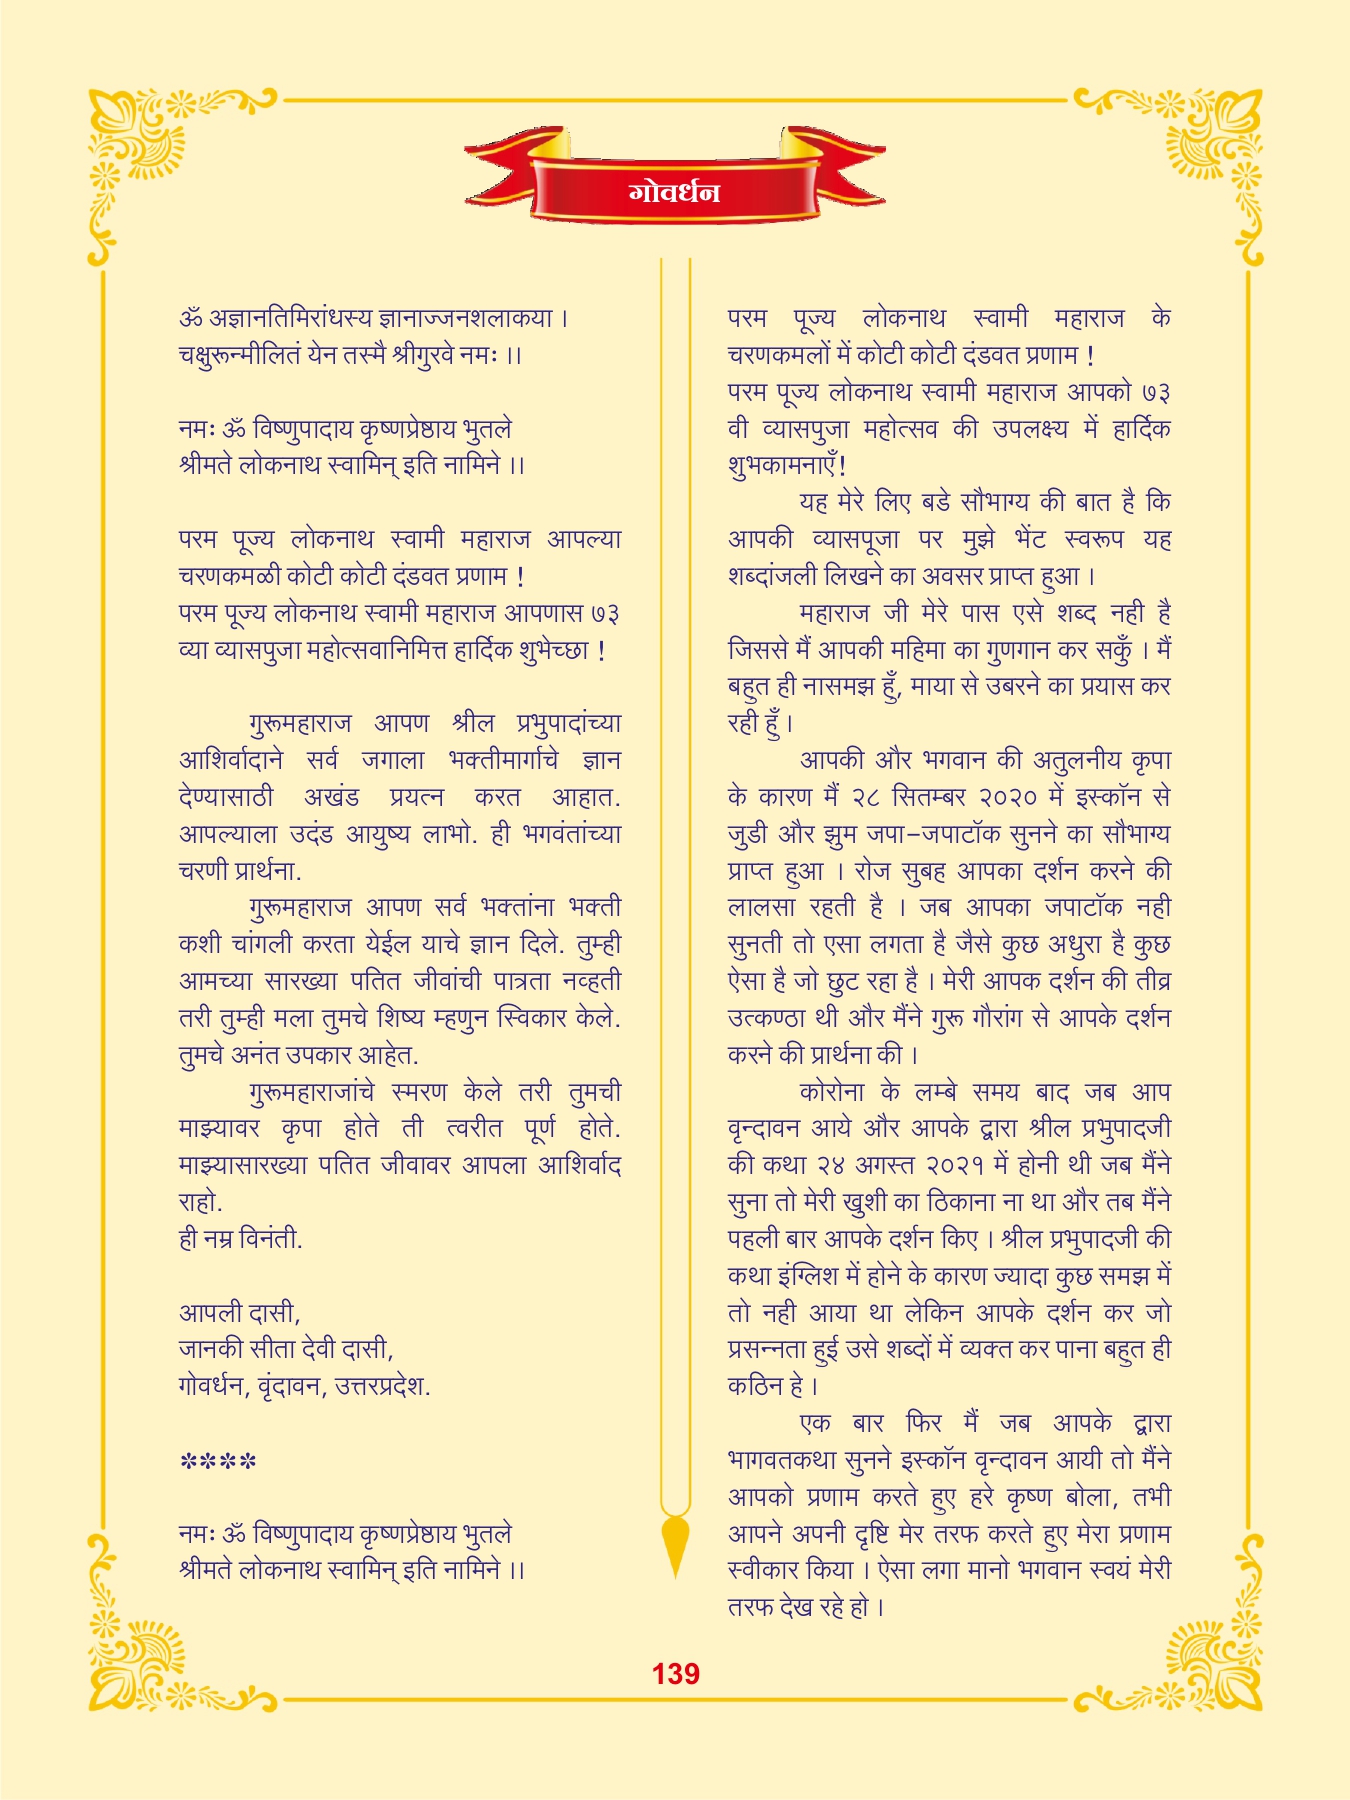 गोवर्धन
ॐ अज्ञानतिमिरांधस्य ज्ञानाज्जनशलाकया ।
चक्षुरून्मीलितं येन तस्मै श्रीगुरवे नमः ।।
नमः ॐ विष्णुपादाय कृष्णप्रेष्ठाय भुतले
श्रीमते लोकनाथ स्वामिन् इति नामिने ।।
परम पूज्य लोकनाथ स्वामी महाराज आपल्या
चरणकमळी कोटी कोटी दंडवत प्रणाम !
परम पूज्य लोकनाथ स्वामी महाराज आपणास ७३
व्या व्यासपुजा महोत्सवानिमित्त हार्दिक शुभेच्छा !
गुरूमहाराज आपण श्रील प्रभुपादांच्या
आशिर्वादाने सर्व जगाला भक्तीमार्गाचे ज्ञान
देण्यासाठी अखंड प्रयत्न करत आहात.
आपल्याला उदंड आयुष्य लाभो. ही भगवंतांच्या
चरणी प्रार्थना.
गुरूमहाराज आपण सर्व भक्तांना भक्ती
कशी चांगली करता येईल याचे ज्ञान दिले. तुम्ही
आमच्या सारख्या पतित जीवांची पात्रता नव्हती
तरी तुम्ही मला तुमचे शिष्य म्हणुन स्विकार केले.
तुमचे अनंत उपकार आहेत.
गुरूमहाराजांचे स्मरण केले तरी तुमची
माझ्यावर कृपा होते ती त्वरीत पूर्ण होते.
माझ्यासारख्या पतित जीवावर आपला आशिर्वाद
राहो.
ही नम्र विनंती.
आपली दासी,
जानकी सीता देवी दासी,
गोवर्धन, वृंदावन, उत्तरप्रदेश.
****
नमः ॐ विष्णुपादाय कृष्णप्रेष्ठाय भुतले
श्रीमते लोकनाथ स्वामिन् इति नामिने ।।
परम पूज्य लोकनाथ स्वामी महाराज के
चरणकमलों में कोटी कोटी दंडवत प्रणाम !
परम पूज्य लोकनाथ स्वामी महाराज आपको ७३
वी व्यासपुजा महोत्सव की उपलक्ष्य में हार्दिक
शुभकामनाएँ!
यह मेरे लिए बडे सौभाग्य की बात है कि
आपकी व्यासपूजा पर मुझे भेंट स्वरूप यह
शब्दांजली लिखने का अवसर प्राप्त हुआ ।
महाराज जी मेरे पास एसे शब्द नही है
जिससे मैं आपकी महिमा का गुणगान कर सकुँ । मैं
बहुत ही नासमझ हुँ, माया से उबरने का प्रयास कर
रही हुँ ।
आपकी और भगवान की अतुलनीय कृपा
के कारण मैं २८ सितम्बर २०२० में इस्कॉन से
जुडी और झुम जपा–जपाटॉक सुनने का सौभाग्य
प्राप्त हुआ । रोज सुबह आपका दर्शन करने की
लालसा रहती है । जब आपका जपाटॉक नही
सुनती तो एसा लगता है जैसे कुछ अधुरा है कुछ
ऐसा है जो छुट रहा है । मेरी आपक दर्शन की तीव्र
उत्कण्ठा थी और मैंने गुरू गौरांग से आपके दर्शन
करने की प्रार्थना की ।
कोरोना के लम्बे समय बाद जब आप
वृन्दावन आये और आपके द्वारा श्रील प्रभुपादजी
की कथा २४ अगस्त २०२१ में होनी थी जब मैंने
सुना तो मेरी खुशी का ठिकाना ना था और तब मैंने
पहली बार आपके दर्शन किए । श्रील प्रभुपादजी की
कथा इंग्लिश में होने के कारण ज्यादा कुछ समझ में
तो नही आया था लेकिन आपके दर्शन कर जो
प्रसन्नता हुई उसे शब्दों में व्यक्त कर पाना बहुत ही
कठिन हे ।
एक बार फिर मैं जब आपके द्वारा
भागवतकथा सुनने इस्कॉन वृन्दावन आयी तो मैंने
आपको प्रणाम करते हुए हरे कृष्ण बोला, तभी
आपने अपनी दृष्टि मेर तरफ करते हुए मेरा प्रणाम
स्वीकार किया । ऐसा लगा मानो भगवान स्वयं मेरी
तरफ देख रहे हो ।
139